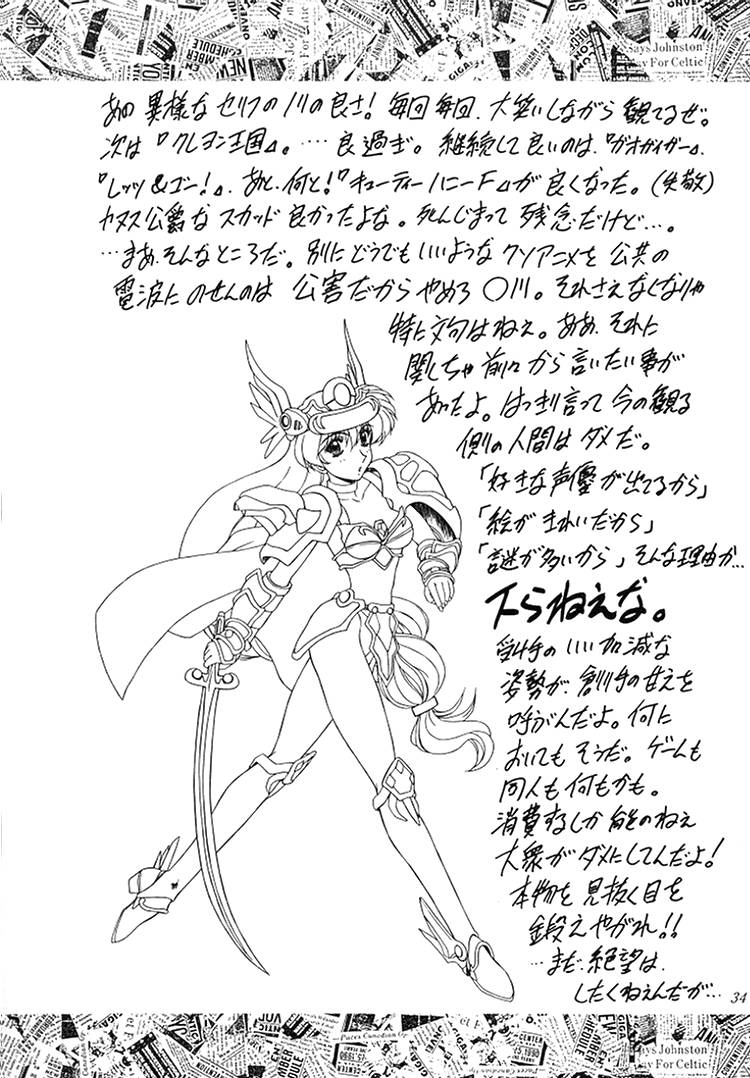 あの異様なセリフのノリの良さ!毎回毎回、大笑いしながら観てるぜ。
次は『クレヨン王国』。……良過ぎ。継続して良いのは、『ガオガイガー』、
『レッツ&ゴー!』、あと、何と!『キューティーハニーF』が良くなった。(失敬)
カヌス公爵なスカッド良かったよな。死んじまって残念だけど…。
…まあ、そんなところだ。別にどうでもいいようなクソアニメを公共の
電波にのせんのは公害だからやめろ〇川。それさえなくなりゃ
特に文句はねぇ。ああ、それに
関しちゃ前々から言いたい事が
あったよ。はっきり言って今の観る
側の人間はダメだ。
「好きな声優が出てるから」
「絵がきれいだから」
「謎が多いから」そんな理由か…
下らねえな。
受け手のいい加減な
姿勢が、創り手の甘えを
呼ぶんだよ。何に
おいてもそうだ。ゲームも
同人も何もかも。
消費するしか能のねぇ
大衆がダメにしてんだよ!
本物を見抜く目を
鍛えやがれ!!
…まだ、絶望は
したくねえんだが…
34
Says Johnston
Day For Celtic
Says Johnston
Day For Celtic